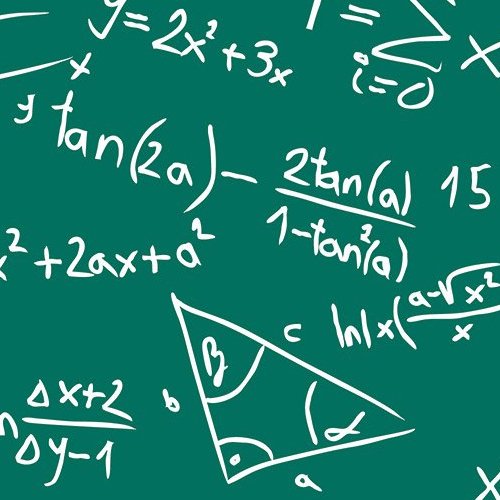 y=2x²+3x
Σ
i=0
x
x
y
tan(2a) - 2tan(a)/1-tan²(a)
15
x²+2ax+a²
ln|x(a-√x²/x
β
c
b
α
a
Δx+2/Δy-1
x